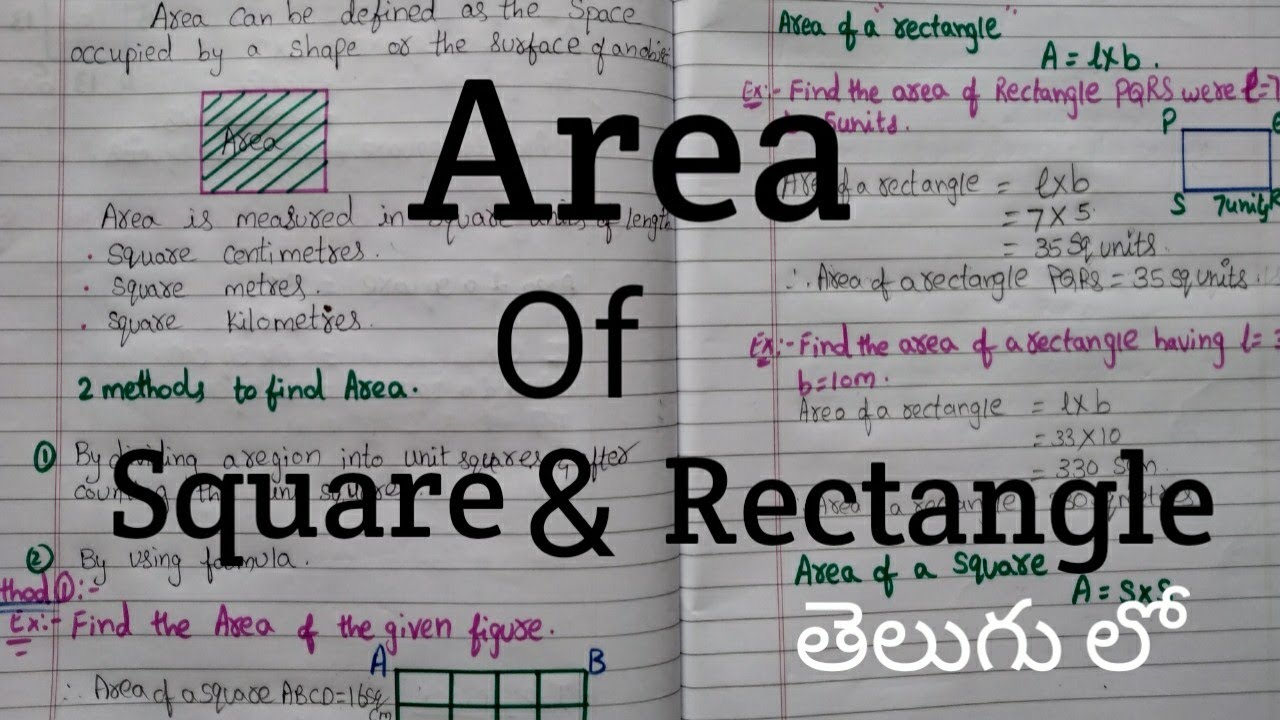 Area can be defined as the Space
occupied by a shape or the surface of an
Area
Area is measured in square units of length
• Square Centimetres.
• Square metres.
• Square Kilometres.
2 methods to find Area.
① By dividing a region into unit squares & after
② By using formula.
thod ①:-
Ex:- Find the Area of the given figure.
A B
∴ Area of a square ABCD = 16 sq
cm
Area of a "rectangle"
A = l×b.
Ex:- Find the area of Rectangle PQRS were l=7
5units.
P
S 7units R
Area of a rectangle = l×b
= 7×5
= 35 Sq units.
∴ Area of a rectangle PQRS = 35 sq units.
Ex:- Find the area of a rectangle having l= 3
b=10m.
Area of a rectangle = l×b
= 33×10
= 330
Area of a square
A = S×S
Area
Of
Square & Rectangle
తెలుగు లో